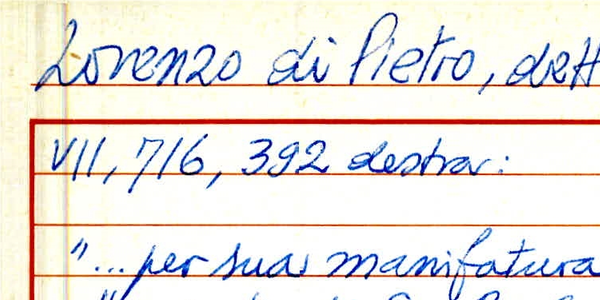 Lorenzo di Pietro, dett
VII, 716, 392 destra:
"... per sua manifatura